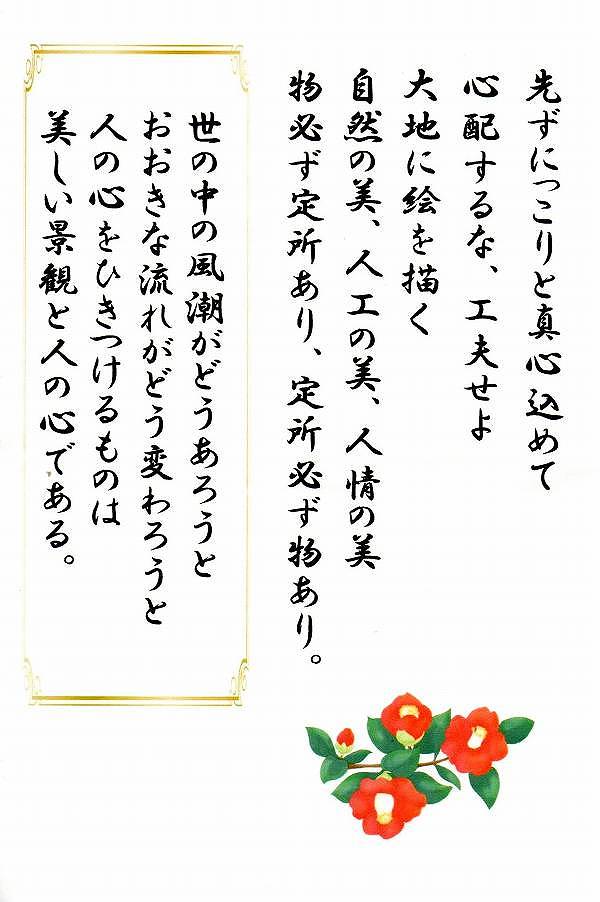 先ずにっこりと真心込めて
心配するな、工夫せよ
大地に絵を描く
自然の美、人工の美、人情の美
物必ず定所あり、定所必ず物あり。
世の中の風潮がどうあろうと
おおきな流れがどう変わろうと
人の心をひきつけるものは
美しい景観と人の心である。